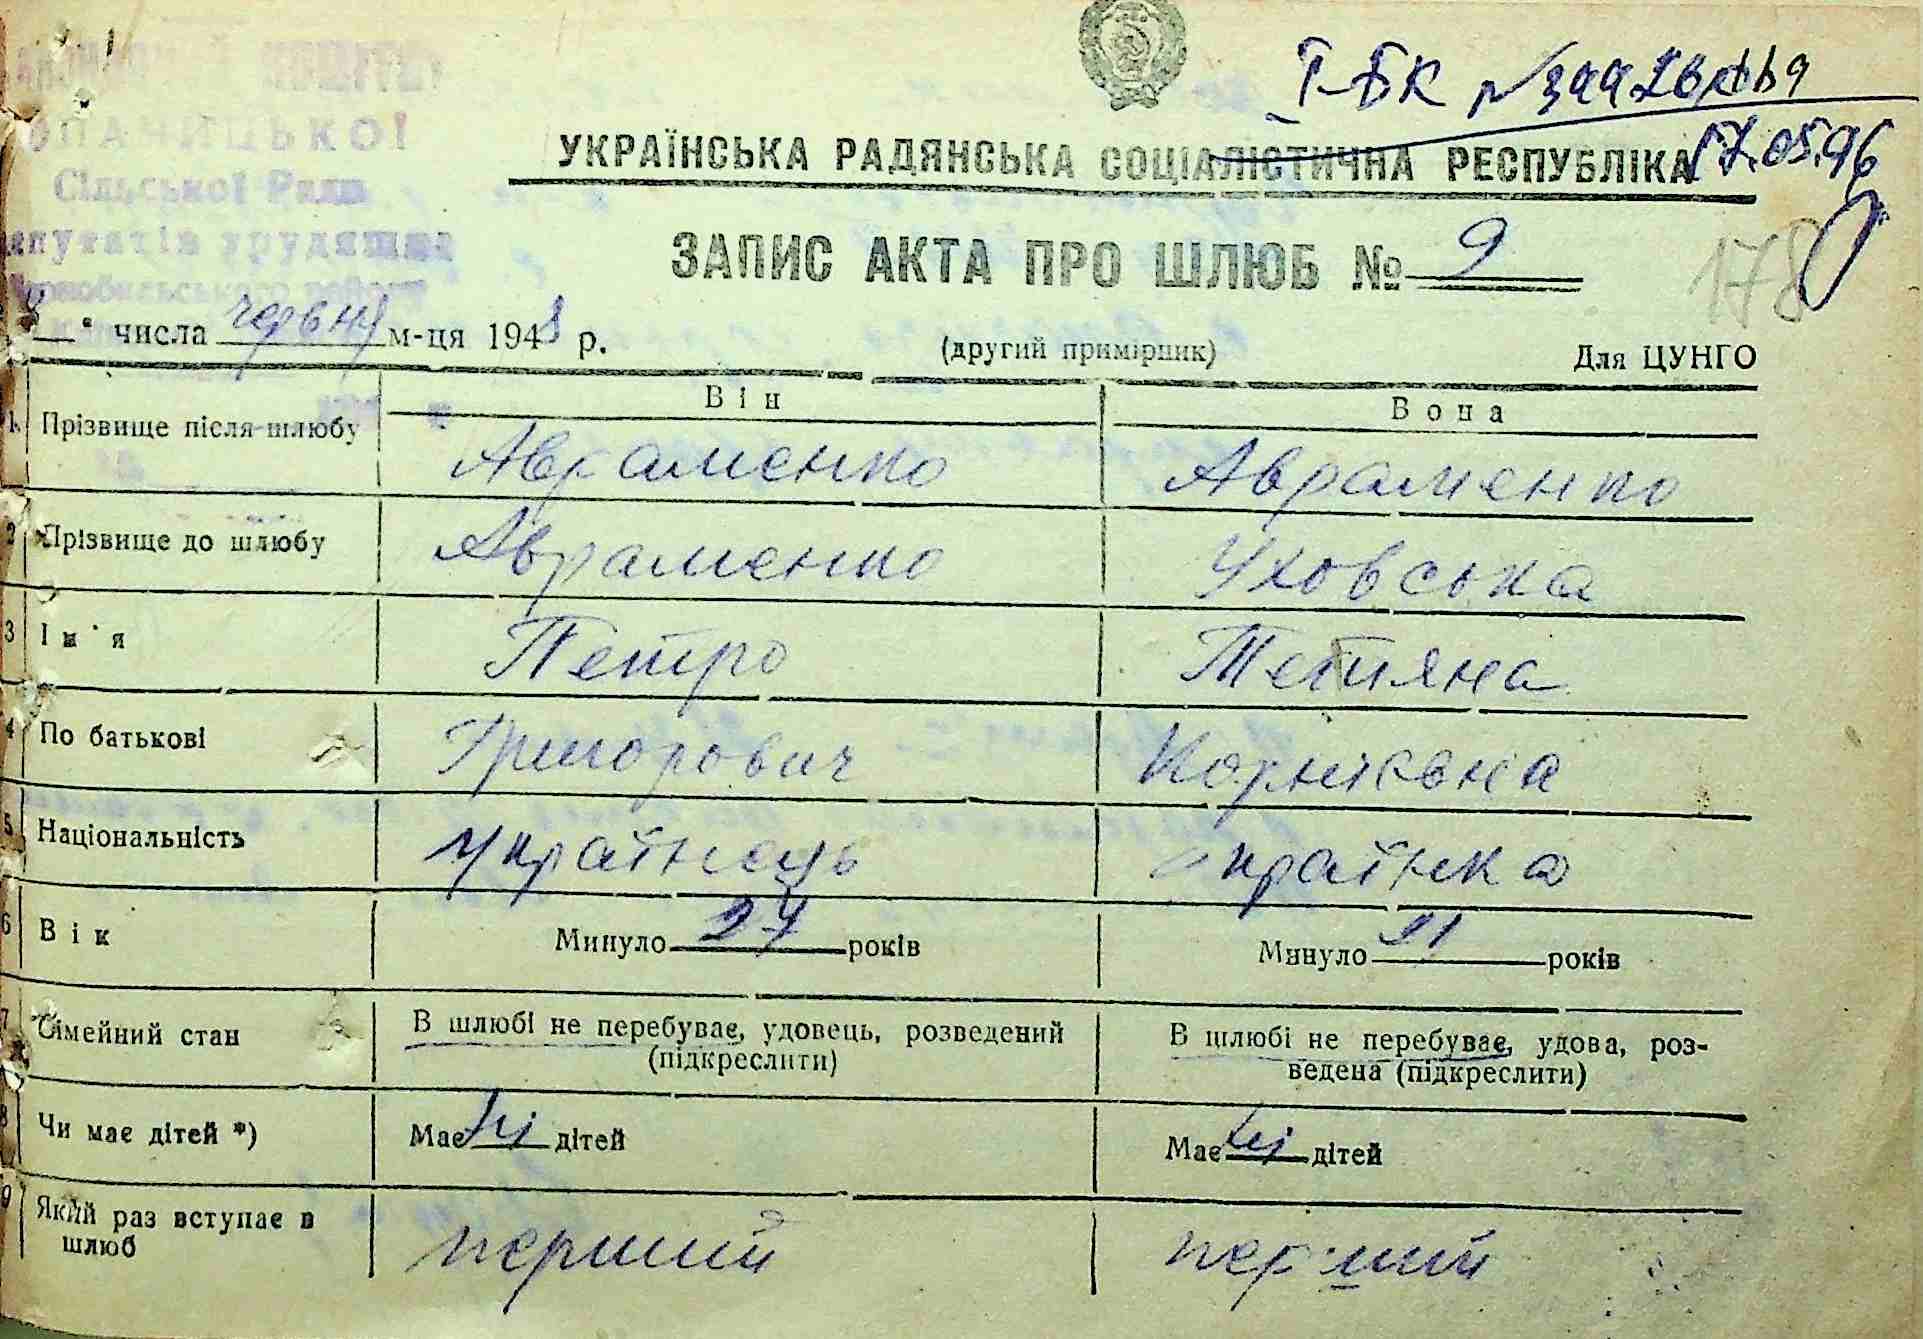 І-БК № 344286
17.05.96
УКРАЇНСЬКА РАДЯНСЬКА СОЦІАЛІСТИЧНА РЕСПУБЛІКА
ОПАЧИЦЬКОЇ
Сільської Ради
депутатів трудящих
Чорнобильського району
ЗАПИС АКТА ПРО ШЛЮБ № 9
178
числа червня м-ця 1948 р.
(другий примірник)
Для ЦУНГО
Він
Вона
1 Прізвище після шлюбу Авраменко Авраменко
2 Прізвище до шлюбу Авраменко Уховська
3 Ім'я Петро Тетияна
4 По батькові Григорович Корнієвна
5 Національність Українець Українка
6 Вік Минуло 27 років Минуло 21 років
7 Сімейний стан В шлюбі не перебуває, удовець, розведений В шлюбі не перебуває, удова, роз-
(підкреслити) ведена (підкреслити)
8 Чи має дітей *) Має ні дітей Має ні дітей
9 Який раз вступає в
шлюб перший перший